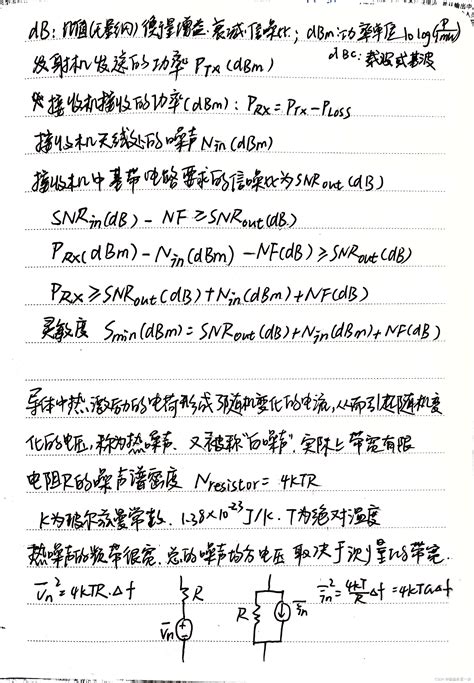 dB: 比值(无量纲) 衡量增益.衰减.信噪比; dBm:功率单位 10log(P/1mw)
dBc: 载波或基波
发射机发送的功率 PTx(dBm)
接收机接收的功率(dBm): PRx=PTx-PLoss
接收机天线处的噪声 Nin(dBm)
接收机中基带电路要求的信噪比为SNRout(dB)
SNRin(dB) - NF ≥ SNRout(dB)
PRx(dBm) - Nin(dBm) - NF(dB) ≥ SNRout(dB)
PRx ≥ SNRout(dB) + Nin(dBm) + NF(dB)
灵敏度 Smin(dBm) = SNRout(dB) + Nin(dBm) + NF(dB)
导体中热激励的电荷形成了随机变化的电流,从而引起随机变
化的电压,称为热噪声.又被称"白噪声".实际上带宽有限
电阻R的噪声谱密度 Nresistor = 4kTR
K为玻尔兹曼常数. 1.38×10⁻²³ J/K. T为绝对温度
热噪声的频带很宽.总的噪声均方电压取决于测量的带宽.
V̅n² = 4kTR·Δf
R
V̅n
R
i̅n
i̅n² = 4kT/R Δf = 4kTGΔf